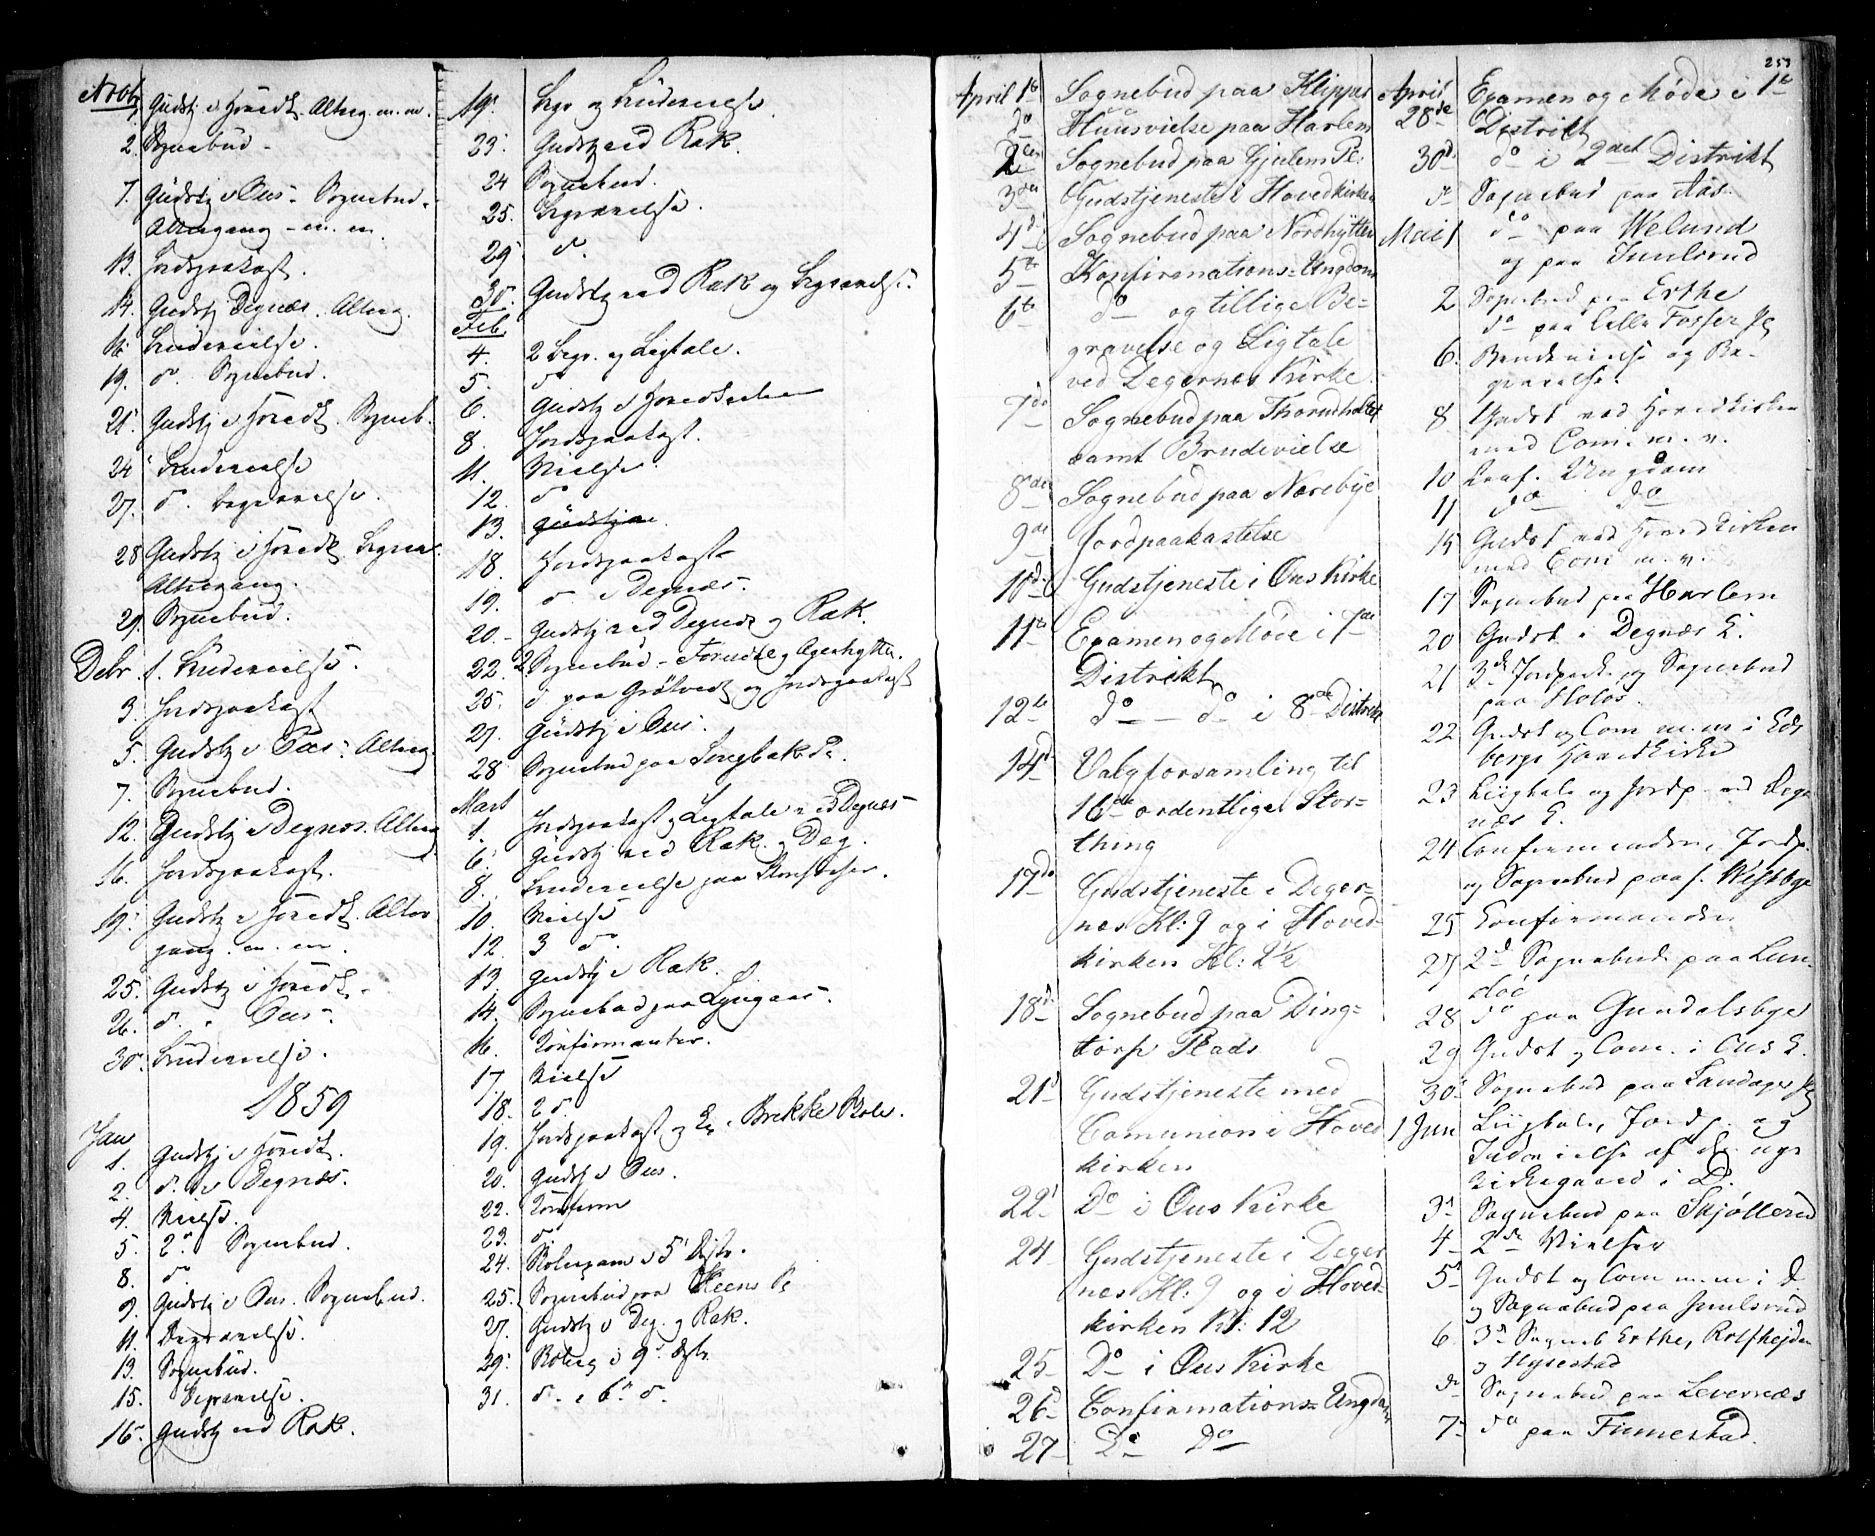 Novb
1. Gudstj i Hovedk. Alterg. m. m.
2. Sognebud -
7. Gudstj i Øus - Sognebud -
Altergang - m. m.
13. Jordspaakast.
14. Gudstj Degnæs. Alterg.
16. Brudevielse.
19. do. Sognebud.
21. Gudstj i Hovedk. Sogneb.
24 Brudevielse
27. do. begravelse.
28 Gudstj i Hovedk
Altergang.
29. Sognebud.
Debr 1. Brudevielse.
3. Jordspaakast
5. Gudstj i Øus. Alterg
7. Sognebud.
12. Gudstj i Degnæs. Alterg
16. Jordspaakast.
19. Gudstj i Hovedk. Alter
gang. m. m.
25. Gudstj i Hovedk -
26. do. i Øus.
30. Brudevielse.
1859
Jan
1. Gudstj i Hovedk.
2. do. i Degnæs.
4. Vielse.
5. 2 do. Sognebud.
8. do
9. Gudstj i Øus. Sognebud.
11. Begravelse.
13. Sognebud.
15. Begravelse.
16. Gudstj ved Rak.
19. Begr og Brudevielse.
23. Gudstj ved Rak.
24 Sognebud.
25. Begravelse.
29. do.
30. Gudstj ved Rak og Begravelse.
Feb
4. 2 Begr. og Ligtale.
5. do
6. Gudstj i Hovedkirken
8. Jordspaakast.
11. Vielse.
12. do
13. Gudstj
18. Jordspaakast
19. do i Degnæs.
20. - Gudstj ved Degnæs og Rak.
22. 2 Sognebud - og Ageshytten.
25. do paa Grøtvedt og Jordspaakast
27. Gudstj i Øus.
28 Sognebud paa Pl.
Mart
1. Jordspaakast og Ligtale ved Degnæs
6. Gudstj ved Rak. og Deg.
8. Brudevielse paa
10. Vielse
12. 3 do.
13. Gudstj i Rak.
14. Sognebud paa Lyngaas.
16. Konfirmanter.
17 Vielse
18. 2 do.
19. Jordspaakast og Ex. i Brekke Skole.
20. Gudstj i Øus.
22. Konfirm
23. do.
24. i 5t Distr.
25. Sognebud paa Pl
27. Gudstj i Deg. og Rak.
29. i 9. Distr
31. do. i 6te do.
253
April 1te Sognebud paa Klippur
do Huusvielse paa Harlem
2den Sognebud paa Gjulem Pl:
3die Gudstjeneste i Hovedkirken
4de Sognebud paa Nordhytten
5te Konfirmations=Ungdom
6te do og tillige Be-
gravelse og Ligtale
ved Degernes Kirke.
7de Sognebud paa Thorudholtet
samt Brudevielse
8de Sognebud paa Næsebye
9de Jordpaakastelse
10de Gudstjeneste i Øus Kirke
11te Examen og Møde i 7de
Distrikt
12te do - do i 8de Distrikt
14de Valgforsamling til
16de ordentlige Stor=
thing
17de Gudstjeneste i Deger=
næs Kl: 9 og i Hoved=
kirken Kl: 2½
18de Sognebud paa Ding=
torp Plads
21de Gudstjeneste med
Comunion i Hoved
kirken
22d Do i Øus Kirke
24 Gudstjeneste i Deger
næs Kl: 9 og i Hoved=
kirken Kl: 12
25 Do i Øus Kirke
26d Confirmations=Ungdom
27 Do Do
April 28de Examen og Møde i 1te
Distrikt
30d do i 2det Distrikt
do Sognebud paa Aas.
Mai 1 do paa Welund
og paa Smulsrud
2 Sognebud paa Erthe
do paa Lille Fosser Pl
6. Brudevielse og Be-
gravelse.
8 Gudst ved Hovedkirken
med Com. m. v.
10 Conf. Ungdom
11 do do
15 Gudst ved Hovedkirken
med Com m. v.
17 Sognebud paa Harlem
20 Gudst i Degnæs K.
21 3de Jordpaak. og Sognebud
paa Holos.
22 Gudst og Com m. m i Eds
bergs Hovedkirke
23 Liigtale og Jordp. ved Deg
næs K.
24 Confirmander, Jordp.
og Sognebud paa s. Westbye
25 Confirmander
27 2de Sognebud paa Lun-
28 do paa Gundalsbye
29 Gudst og Com. i Øus K.
30 Sognebud paa Landager Pl
1 Jun Liigtale, Jordp. og
Indvielse af den nye
Kirkegaard i D.
3d Sognebud paa Skjøllerud
4 2de Vielser
5d Gudst og Com m. m i D
og Sognebud paa Smulsrud
6. 3de Sogneb Erthe, Rolfhejden
og Hysestad
do Sognebud paa Levernæs
7. do paa Finnestad.